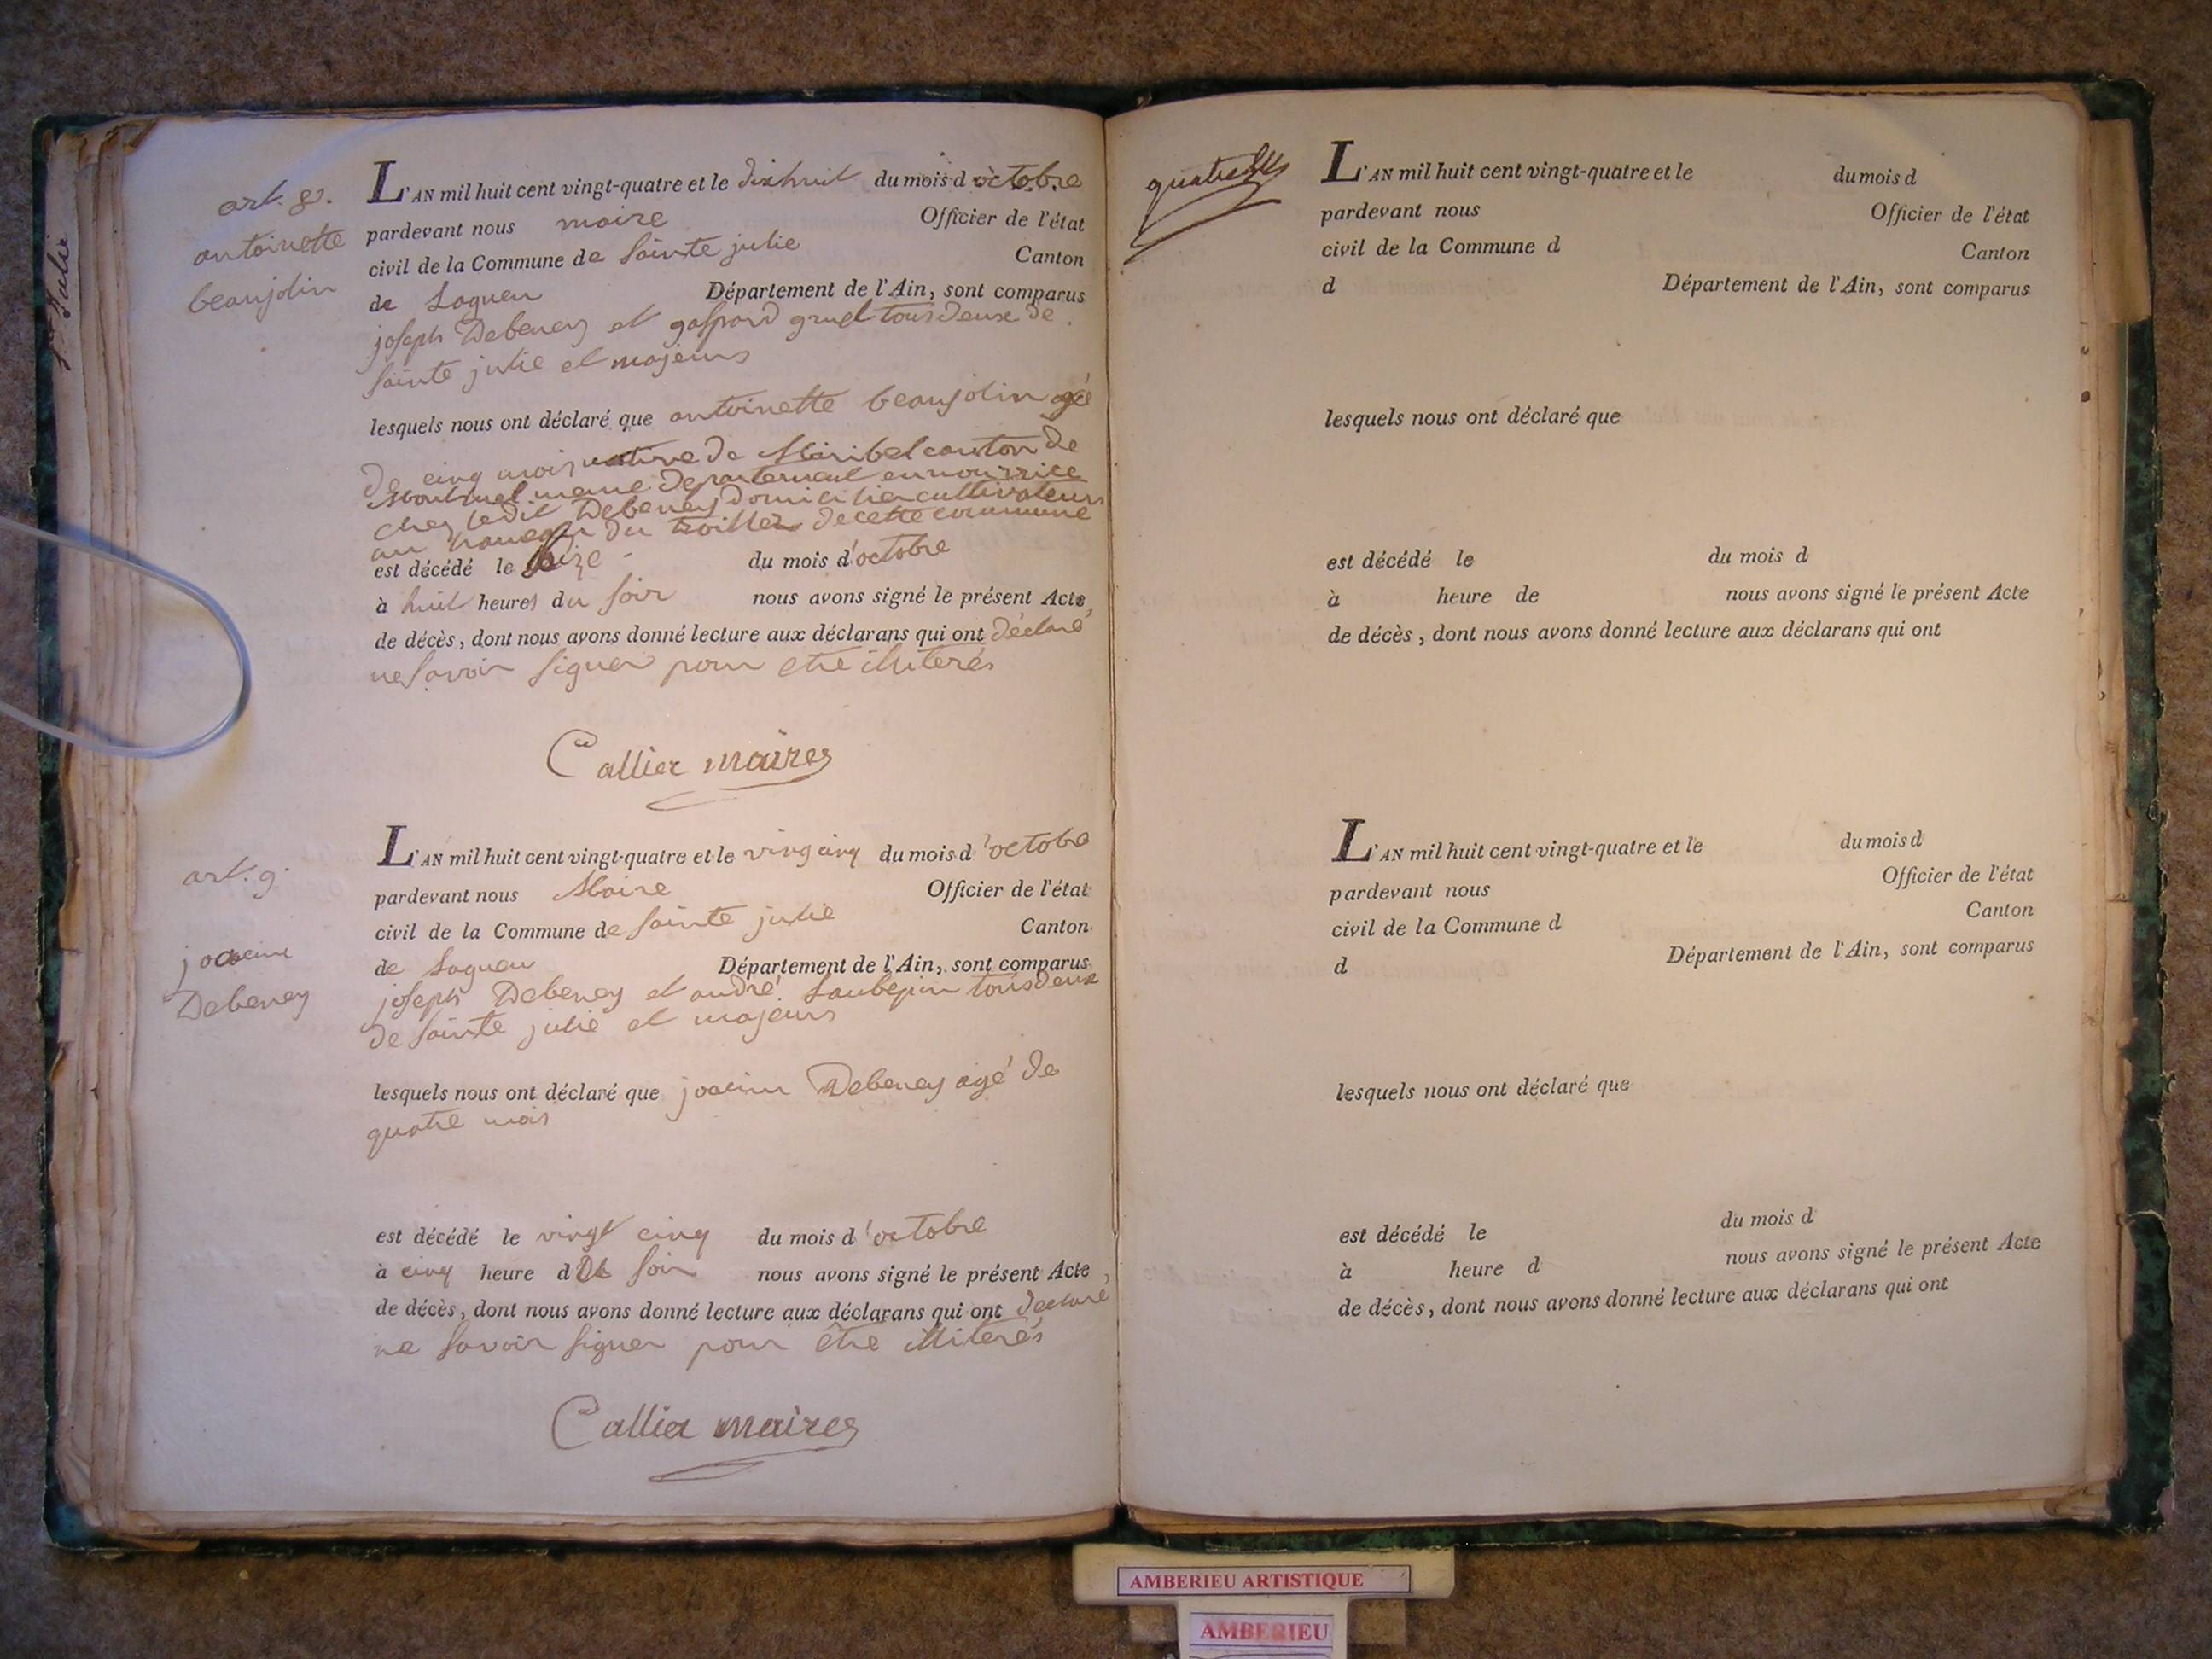 Ste Julie
art. 8.
antoinette
beaujolin
L'AN mil huit cent vingt-quatre et le dixhuit du mois d octobre
pardevant nous maire Officier de l'état
civil de la Commune de Sainte julie Canton
de Lagneu Département de l'Ain, sont comparus
joseph Debeney et gaspard gruel tous deux de
sainte julie et majeurs
lesquels nous ont déclaré que antoinette beaujolin agé
de cinq mois native de Miribel canton de
Montluel meme departement en nourrice
chez ledit Debeney domicilier cultivateur
au du decette commune
est décédé le seize du mois d'octobre
à huit heures du soir nous avons signé le présent Acte,
de décès, dont nous avons donné lecture aux déclarans qui ont déclaré
ne savoir signer pour etre illiterés
Callier maire
art. 9.
joacim
Debeney
L'AN mil huit cent vingt-quatre et le vingcinq du mois d'octobre
pardevant nous Maire Officier de l'état
civil de la Commune de Sainte julie Canton
de Lagneu Département de l'Ain, sont comparus
joseph Debeney et andré Laubepin tous deux
de sainte julie et majeurs
lesquels nous ont déclaré que joacim Debeney agé de
quatre mois
est décédé le vingt cinq du mois d'octobre
à cinq heure du soir nous avons signé le présent Acte,
de décès, dont nous avons donné lecture aux déclarans qui ont declaré
ne savoir signer pour être illiterés
Callier maire
L'AN mil huit cent vingt-quatre et le du mois d
pardevant nous Officier de l'état
civil de la Commune d Canton
d Département de l'Ain, sont comparus
lesquels nous ont déclaré que
est décédé le du mois d
à heure de nous avons signé le présent Acte
de décès, dont nous avons donné lecture aux déclarans qui ont
L'AN mil huit cent vingt-quatre et le du mois d
pardevant nous Officier de l'état
civil de la Commune d Canton
d Département de l'Ain, sont comparus
lesquels nous ont déclaré que
est décédé le du mois d
à heure d nous avons signé le présent Acte
de décès, dont nous avons donné lecture aux déclarans qui ont
AMBERIEU ARTISTIQUE
AMBERIEU